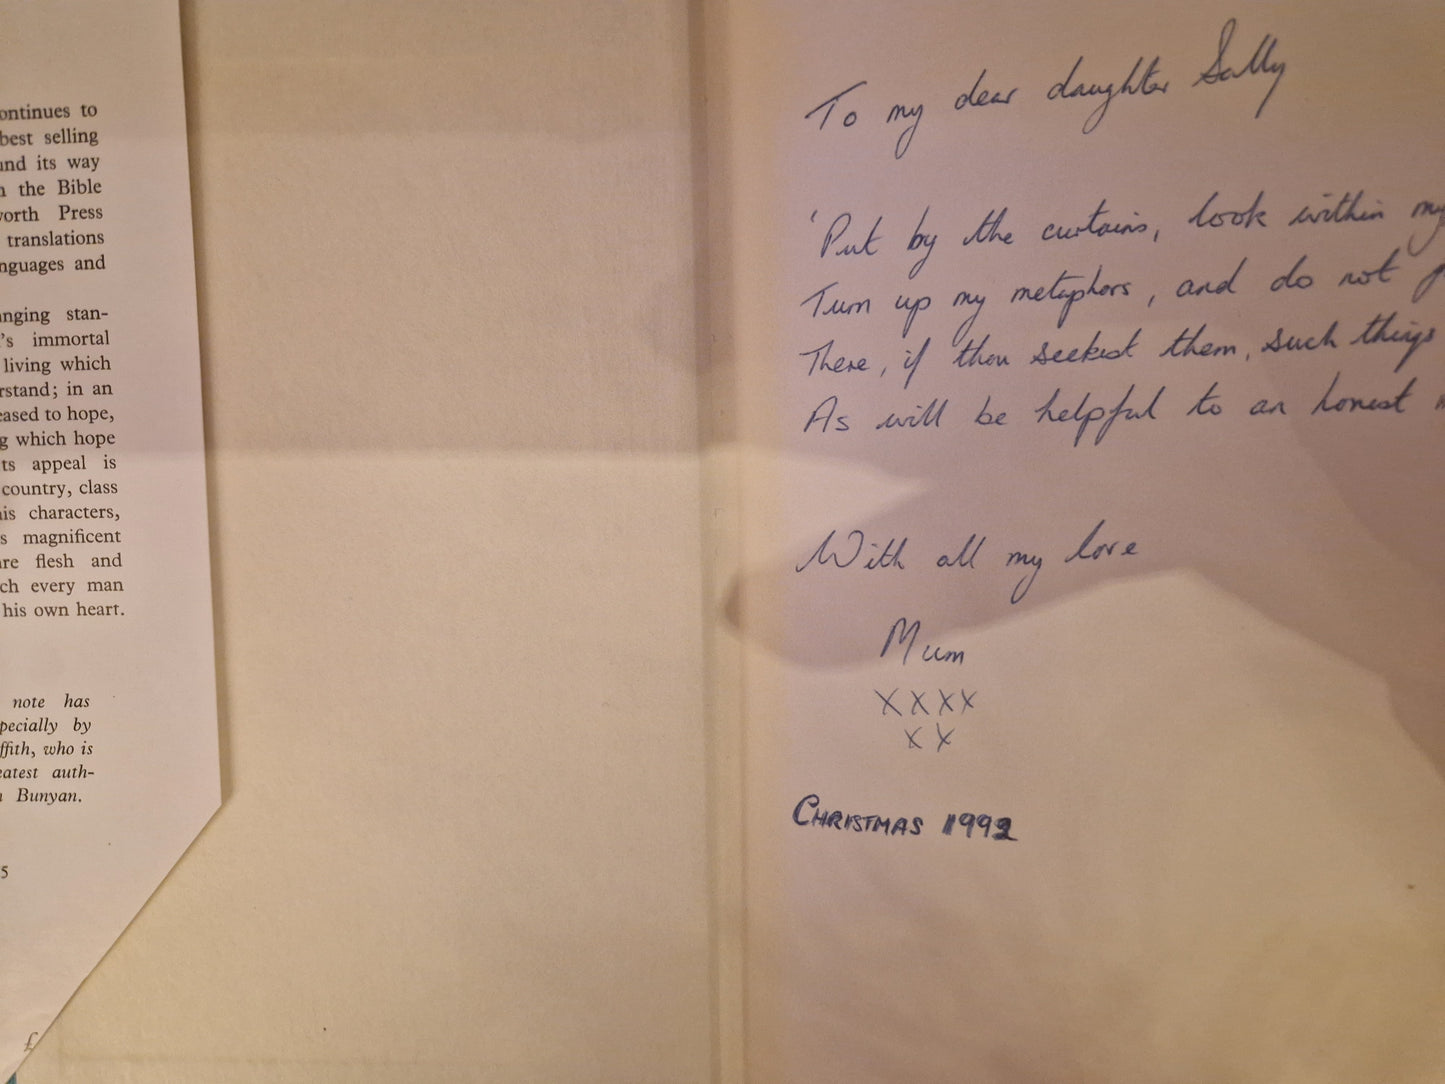 ontinues to
best selling
und its way
the Bible
orth Press
translations
nguages and
anging stan-
's immortal
living which
rstand; in an
eased to hope,
g which hope
ts appeal is
country, class
is characters,
s magnificent
re flesh and
ch every man
his own heart.
note has
pecially by
ffith, who is
eatest auth-
Bunyan.
5
£
To my dear daughter Sally
'Put by the curtains, look within my
Turn up my metaphors, and do not
There, if thou seekest them, such things
As will be helpful to an honest
With all my love
Mum
XXXX
XX
CHRISTMAS 1992